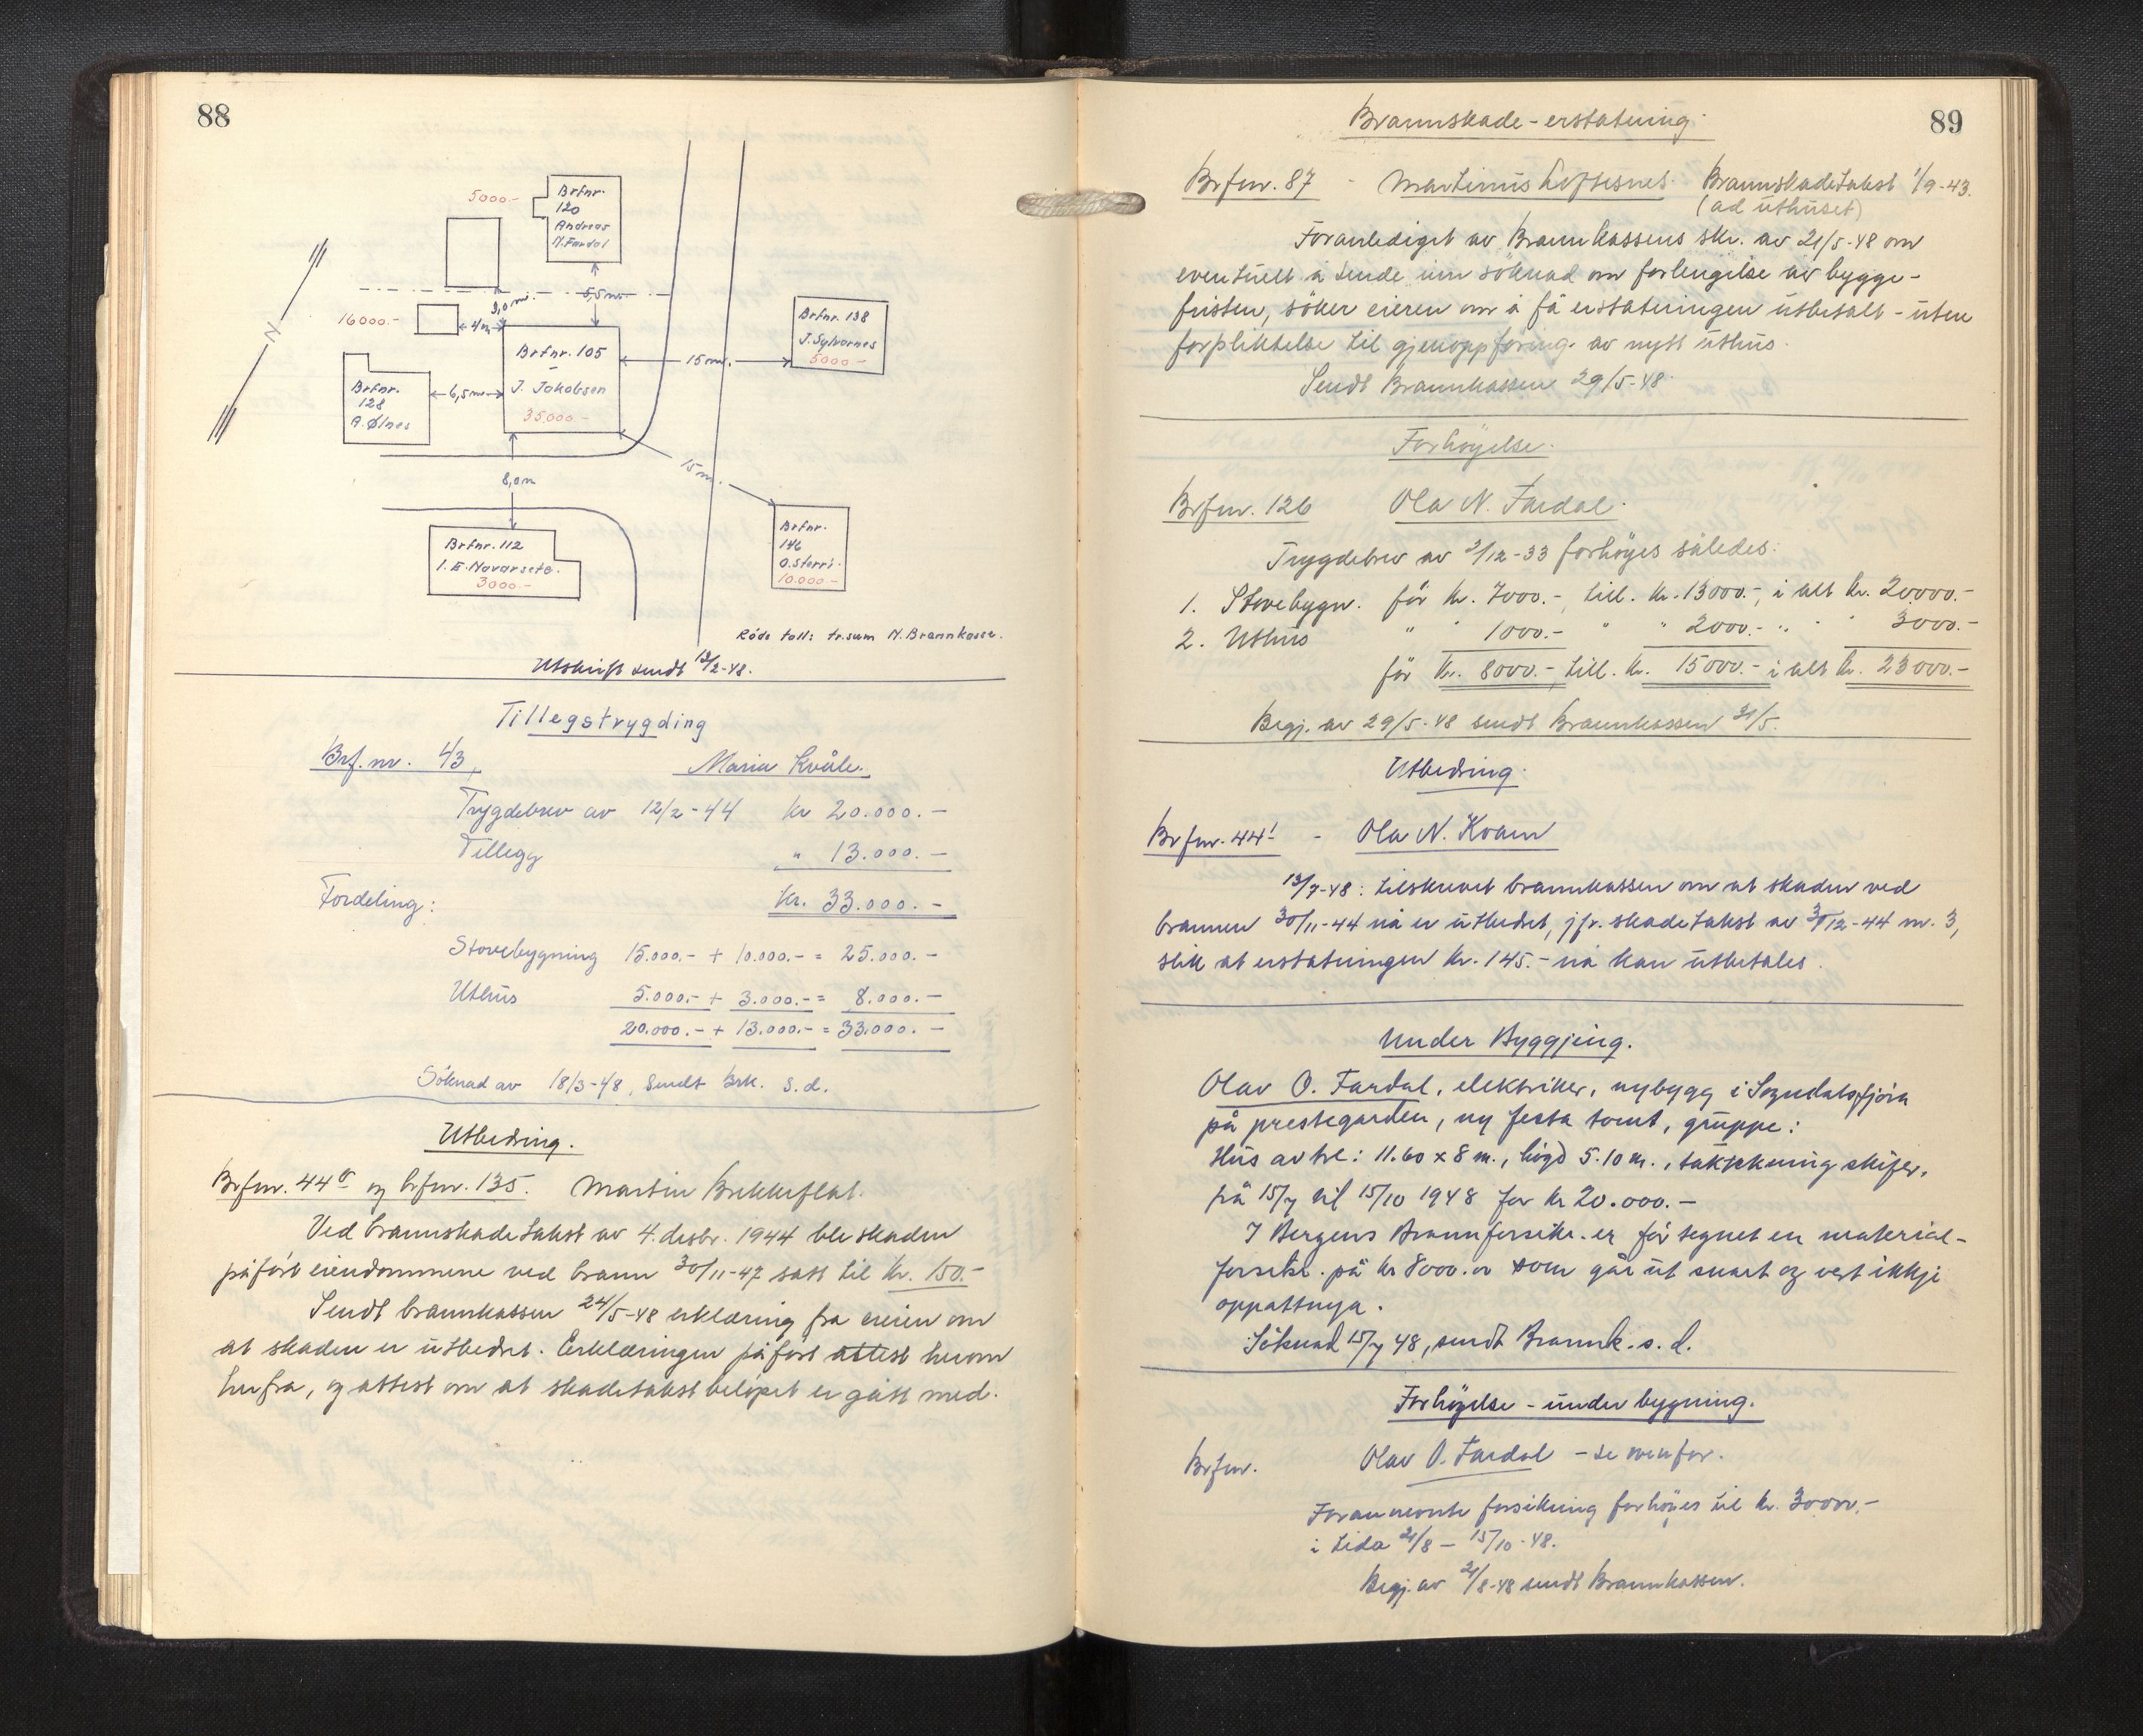 88
5000-
Brfnr.
120
Andreas
N. Fardal
N
3,0 m.
5,5 m.
16000.-
4m
Brfnr. 105
-
J. Jakobsen
35000.-
15 m.
Brfnr. 138
J. Sylvarnes
5000.-
Brfnr.
128
A. Ølnes
6,5 m
15 m.
8,0 m
Brfnr. 112
I. E. Navarsete.
3000.-
Brfnr.
146
O. Sterri.
10.000.-
Röde tall: tr.sum N. Brannkasse.
Utskrift sendt 12/2-48.
Tillegstrygding
Brf. nr. 43, Maria Kvåle.
Trygdebrev av 12/2-44 kr 20.000.-
Tillegg " 13.000.-
Fordeling: Kr. 33.000.-
Stovebygning 15.000.- + 10.000.- = 25.000.-
Uthus 5.000.- + 3.000.- = 8.000.-
20.000.- + 13.000.- = 33.000.-
Söknad av 18/3-48, sendt Brk. s.d.
Utbedring.
Brfnr. 44 og brfnr. 135. Martin Brekkeflat.
Ved brannskadetakst av 4. desbr. 1944 ble skaden
påfört eiendommene ved brann 30/11-47 satt til kr. 150.-
Sendt brannkassen 24/5-48 erklæring fra eieren om
at skaden er utbedret. Erklæringen påfört attest herom
herfra, og attest om at skadetakstbelöpet er gått med.
89
Brannskade-erstatning.
Brfnr. 87 - Martinus Loftesnes. Brannskadetakst 1/9-43.
(ad uthuset)
Foranlediget av Brannkassens skr. av 21/5-48 om
eventuelt å sende inn söknad om forlengelse av bygge-
fristen, söker eieren om å få erstatningen utbetalt - uten
forpliktelse til gjenoppföring av nytt uthus.
Sendt Brannkassen 29/5-48.
Forhöyelse.
Brfnr. 126 Ola N. Fardal.
Trygdebrev av 2/12-33 forhöyes således:
1. Stovebygn. för kr. 7000.-, till. kr. 13000.-, i alt kr. 20000.-
2. Uthus " " 1000.- " " 2000.- " " " 3000.-
för kr. 8000.-, till. kr. 15000.- i alt kr. 23000.-
Begj. av 29/5-48 sendt Brannkassen 31/5.
Utbedring.
Brfnr. 44¹ - Ola N. Kvam
13/7-48: tilskrevet brannkassen om at skaden ved
brannen 30/11-44 nå er utbedret, jfr. skadetakst av 3/12-44 nr. 3,
slik at erstatningen kr. 145.- nå kan utbetales.
Under Byggjing.
Olav O. Fardal, elektriker, nybygg i Sogndalsfjöra
på prestegarden, ny festa tomt, gruppe:
Hus av tre: 11.60 x 8 m., högd 5.10 m., taktekning skifer,
på 15/7 til 15/10 1948 for kr 20.000.-
I Bergens Brannforsikr. er för tegnet en material-
forsikr. på kr 8000.00 som går ut snart og vert ikkje
oppattnya.
Söknad 15/7 48, sendt Brannk. s. d.
Forhöyelse - under bygning.
Brfnr. Olav O. Fardal - se ovenfor.
Forannevnte forsikring forhöyes til kr. 30000.-
i tida 21/8 - 15/10-48.
Begj. av 21/8-48 sendt Brannkassen.